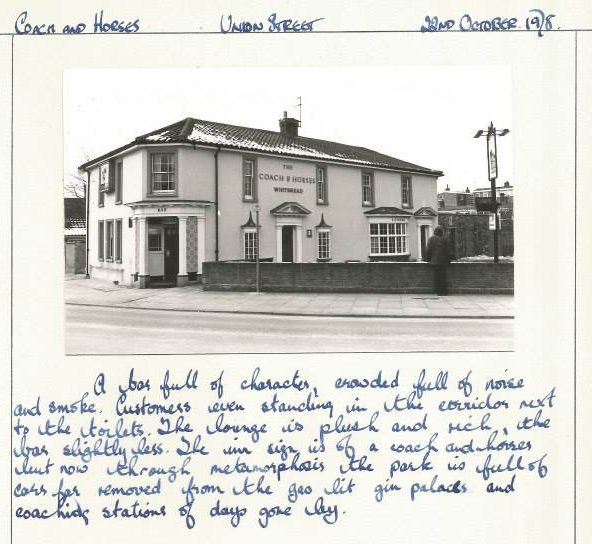 COACH AND HORSES UNION STREET 22ND OCTOBER 1978.
THE
COACH & HORSES
WHITBREAD
BAR
A bar full of character, crowded full of noise
and smoke. Customers even standing in the corridor next
to the toilets. The lounge is plush and rich, the
bar slightly less. The inn sign is of a coach and horses
but now through metamorphosis the park is full of
cars far removed from the gas lit gin palaces and
coaching stations of days gone by.